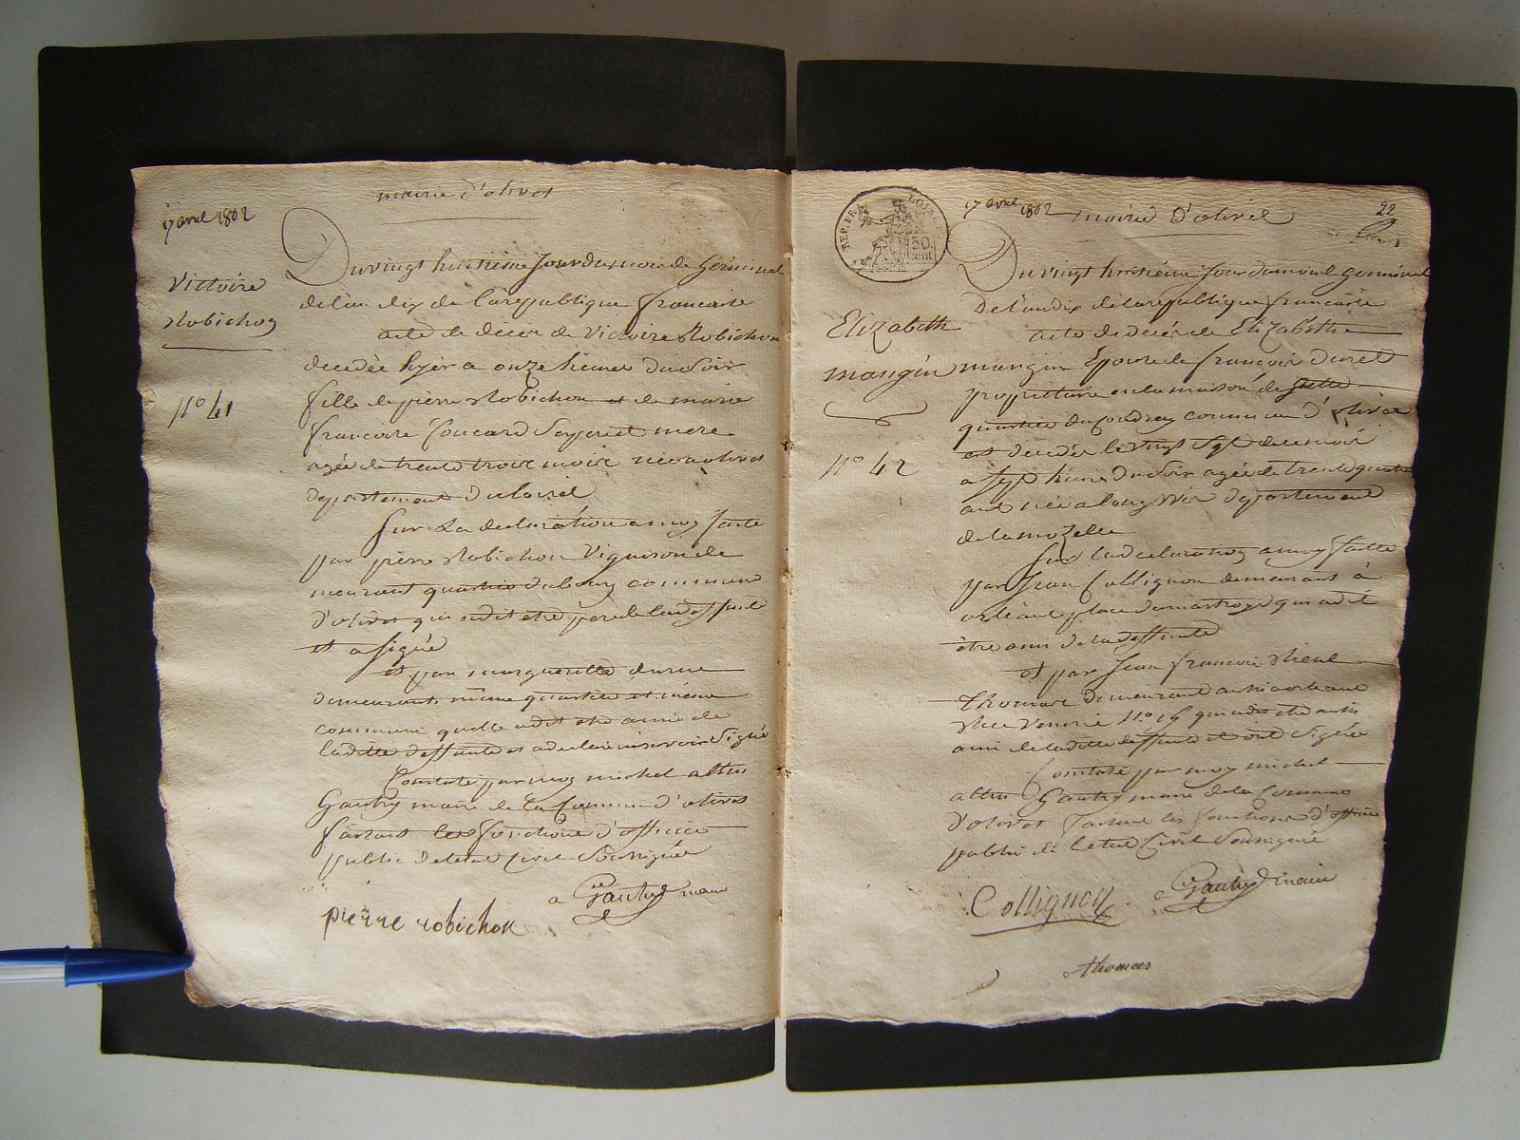 mairie d'olivet
17 avril 1802
Victoire
Robichon
N° 41
Du vingt huitième Jour du mois de Germinal
de l'an dix de la republique francaise
acte de deces de Victoire Robichon
decedée hyer a onze heures du Soir
fille de pierre Robichon et de marie
francoise foucard Ses pere et mere
agée de trente trois mois née a olivet
departement du loiret
Sur La declaration a moy faite
par pierre Robichon Vigneron de
meurant quartier du bourg commune
d'olivet qui a dit etre pere de la deffunte
et a signé
et par margueritte
demeurant même quartier et même
commune quelle a dit etre amie de
laditte deffunte et a declaré ne savoir Signé
Constaté par moy michel altin
Gautry maire de la Commune d'olivet
faisant les fonctions d'officier
public de letat Civil Soussigné
Gautry maire
pierre robichon
REP. FRA.
50
cent
17 avril 1802
mairie D'olivet
22
Elizabeth
mangin
N° 42
Du vingt huitiéme Jour du mois de germinal
de l'an dix de la republique francaise
acte de decés de Elizabeth
mangin Epouse de francois
propriettaire en la maison de
quartier du commune d'olivet
est decedée le vingt Sept de ce mois
a Sept heures du Soir agée de trente quatre
ans née a departement
de la mozelle
Sur la declaration a moy faitte
par Jean Collignon demeurant à
orléans place du martroy qui a dit
être ami de la deffunte
et par Jean francois
thomas demeurant aussi a orleans
Rue N° 16 qui a dit etre aussi
ami de laditte deffunte et ont Signés
Constaté par moy michel
altin Gautry maire de la Commune
d'olivet faisant les fonctions d'officier
public de letat Civil Soussigné
Collignon
Gautry maire
thomas